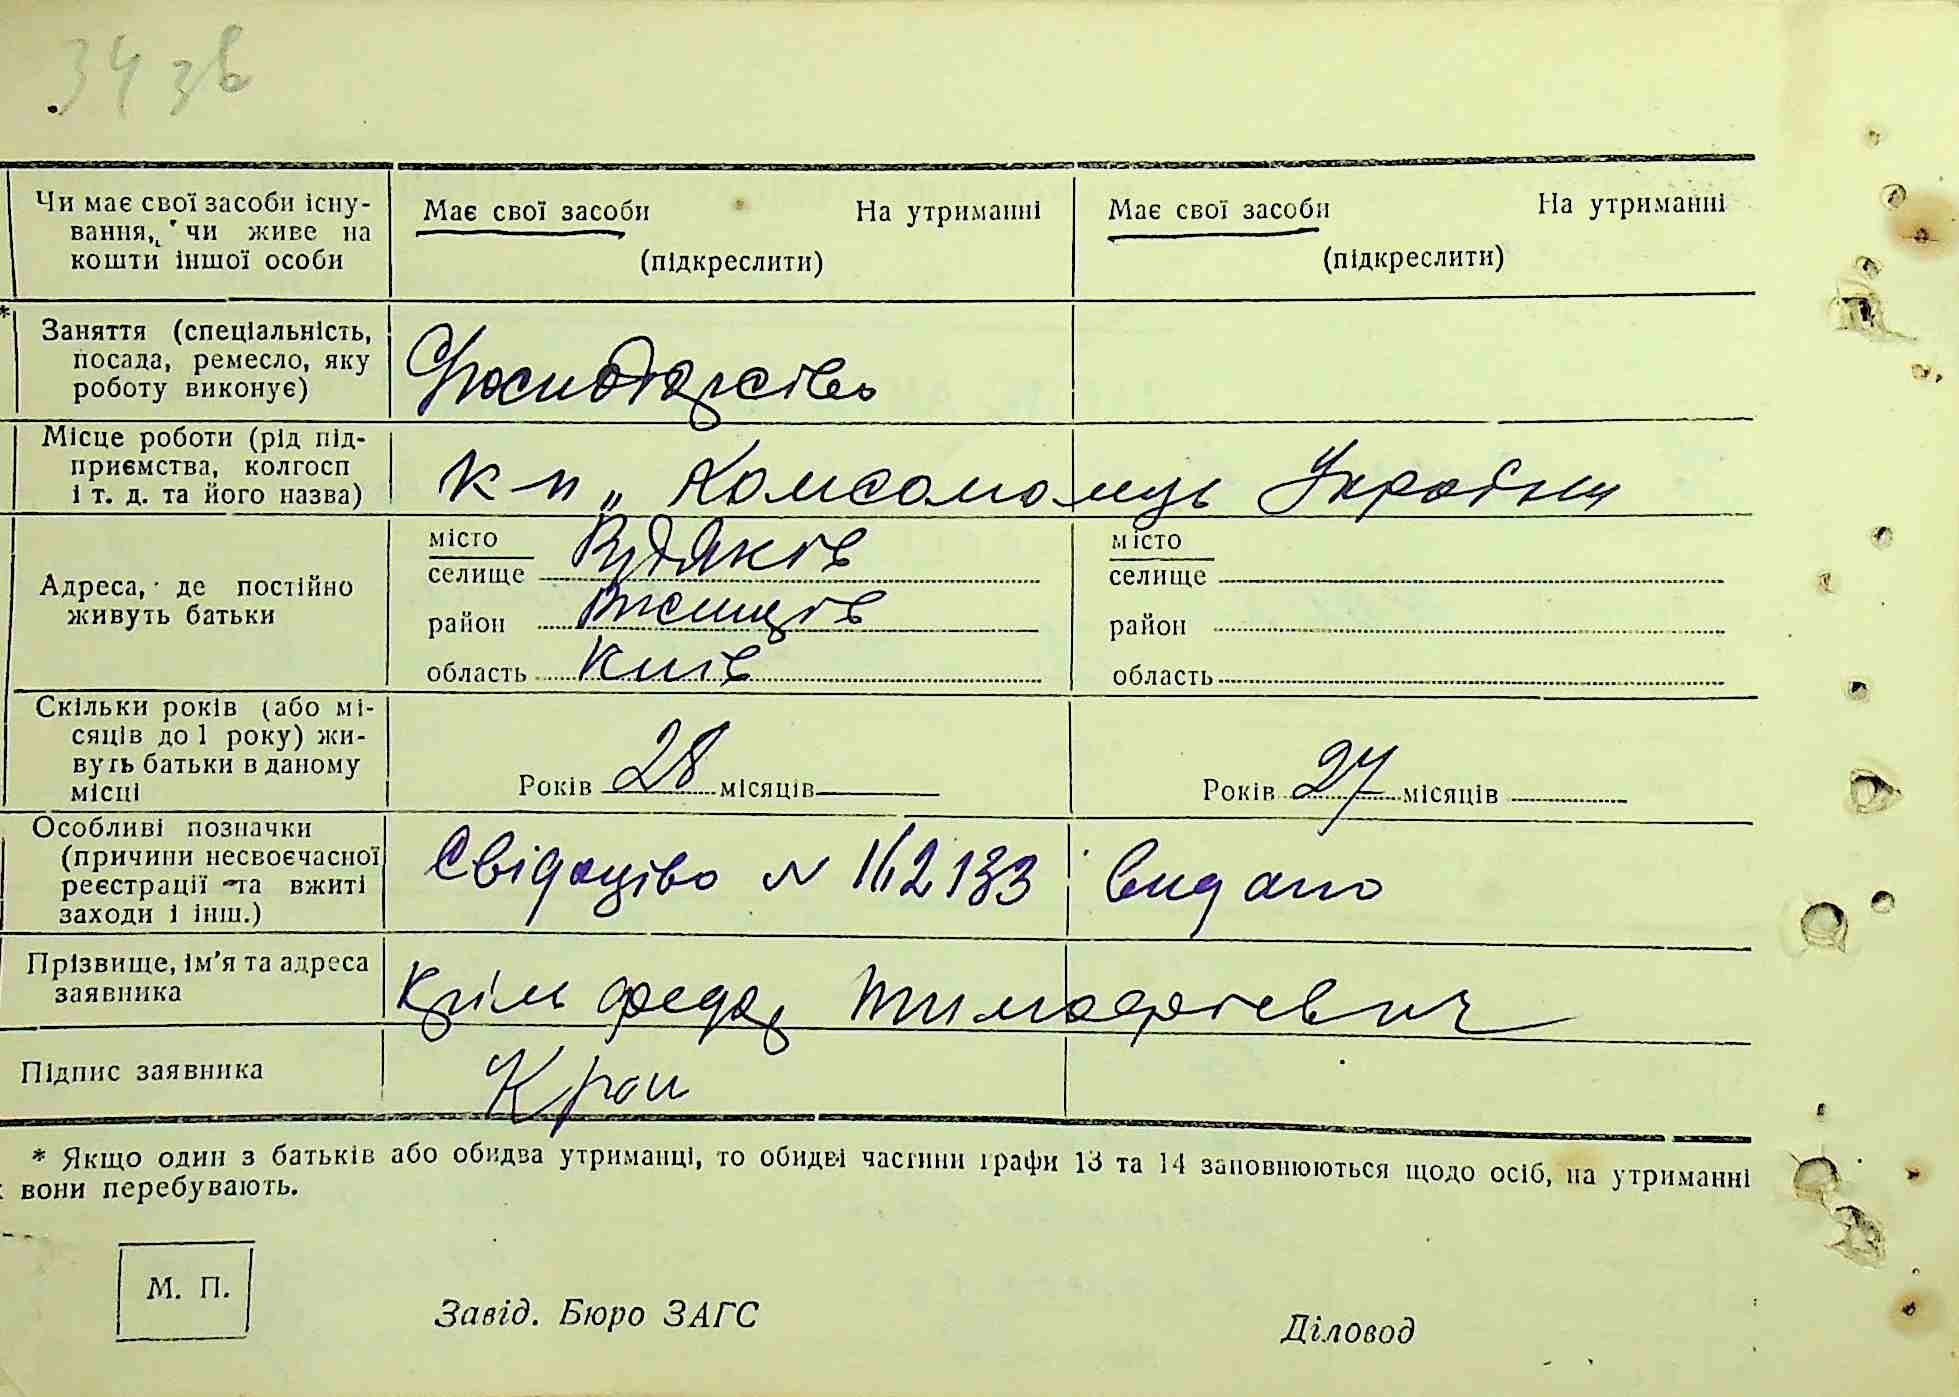 34 зв
Чи має свої засоби існу-
вання, чи живе на
кошти іншої особи
Має свої засоби На утриманні
(підкреслити)
Має свої засоби На утриманні
(підкреслити)
* Заняття (спеціальність,
посада, ремесло, яку
роботу виконує)
Господарство
Місце роботи (рід під-
приємства, колгосп
і т. д. та його назва)
к-п „ Комсомолець України
Адреса, де постійно
живуть батьки
місто
селище Вудяків
район
область Київ
місто
селище
район
область
Скільки років (або мі-
сяців до 1 року) жи-
вуть батьки в даному
місці
Років 28 місяців
Років 27 місяців
Особливі позначки
(причини несвоєчасної
реєстрації та вжиті
заходи і інш.)
Свідоцтво № 162133 видано
Прізвище, ім'я та адреса
заявника
Федор Тимофієвич
Підпис заявника
* Якщо один з батьків або обидва утриманці, то обидві частини графи 13 та 14 заповнюються щодо осіб, на утриманні
вони перебувають.
М. П.
Завід. Бюро ЗАГС
Діловод